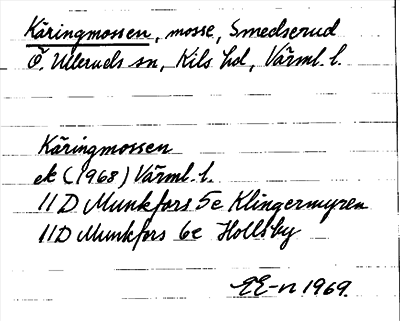 Käringmossen, mosse, Smedserud
Ö. Ulleruds sn, Kils hd, Värml. l.
Käringmossen
ek (1968) Värml. l.
11D Munkfors 5e Klingermyren
11D Munkfors 6e Hollsby
EE-n 1969.